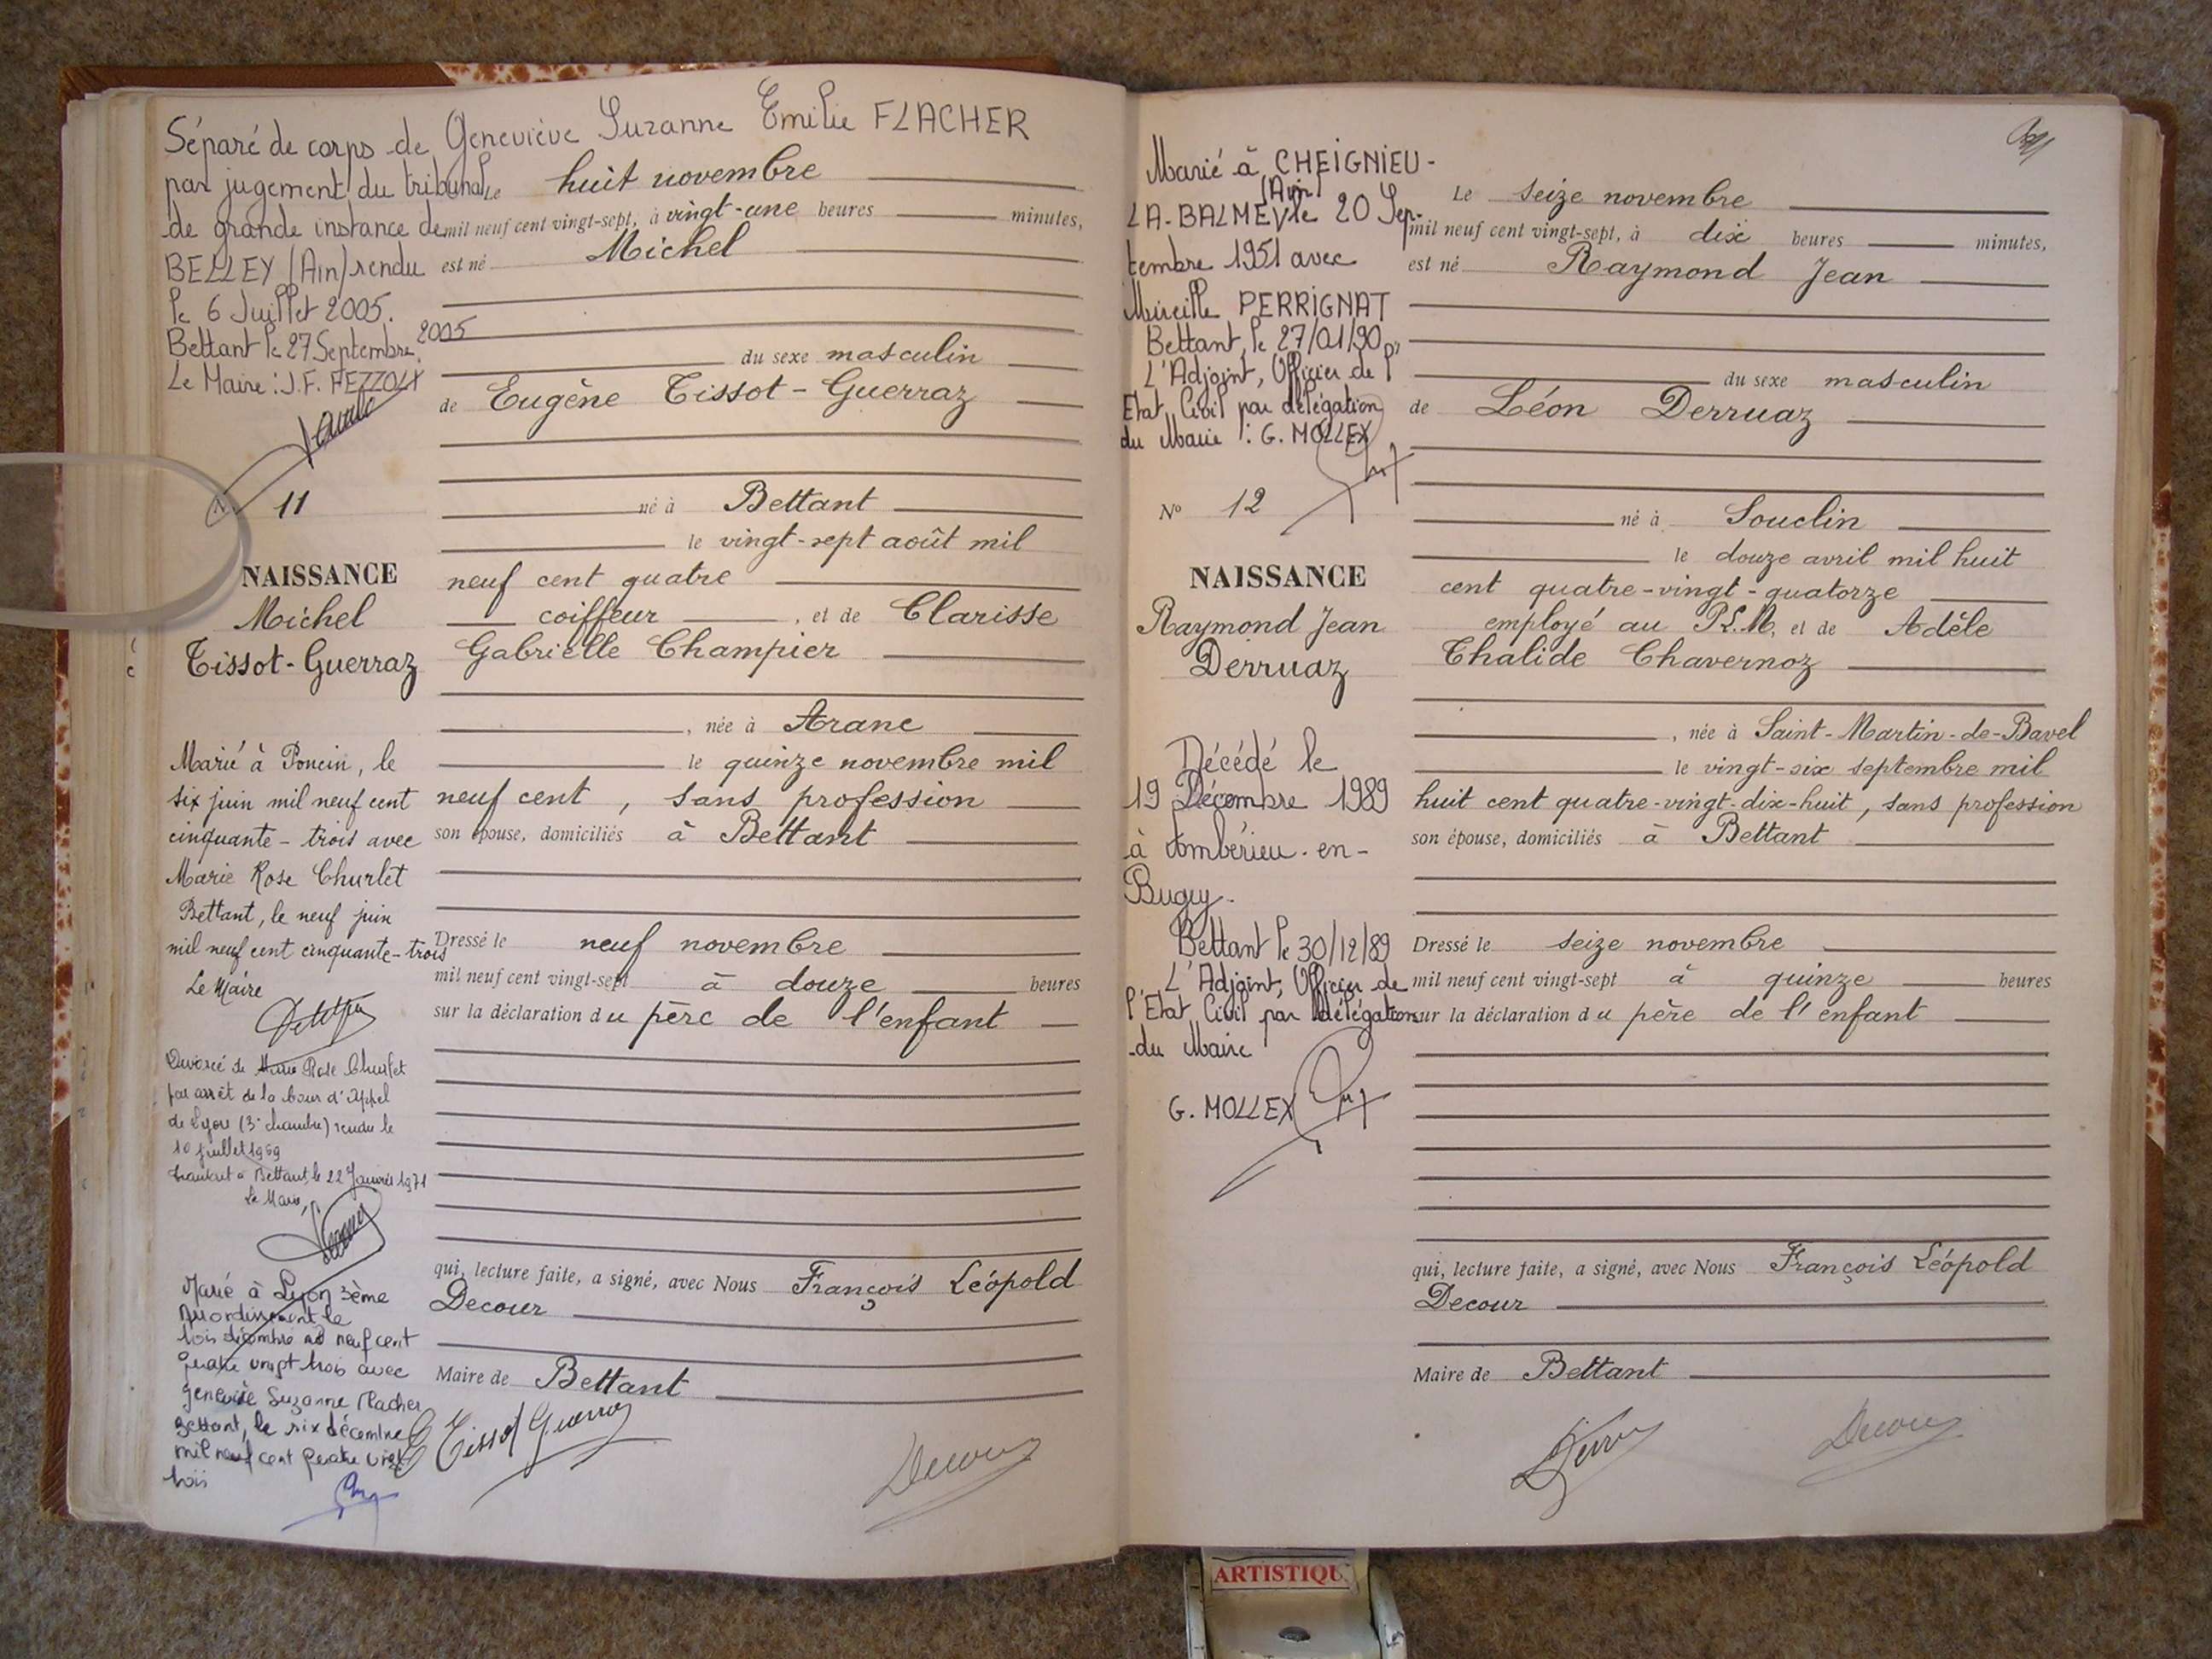 Séparé de corps de Geneviève Suzanne Emilie FLACHER
par jugement du tribunal
de grande instance de
BELLEY (Ain) rendu
le 6 Juillet 2005.
Bettant le 27 Septembre 2005
Le Maire : J.F.
N° 11
NAISSANCE
Michel
Tissot-Guerraz
Marié à Poncin, le
six juin mil neuf cent
cinquante-trois avec
Marie Rose Churlet
Bettant, le neuf juin
mil neuf cent cinquante-trois
Le Maire
Divorcé de Marie Rose Churlet
par arrêt de la Cour d'Appel
de Lyon (3e chambre) rendu le
10 juillet 1969
Bettant, le 22 Janvier 1971
Le Maire,
Marié à Lyon 3ème
Arrondissement le
trois décembre mil neuf cent
quatre vingt trois avec
Geneviève Suzanne Flacher
Bettant, le six décembre
mil neuf cent quatre vingt
trois
Le huit novembre
mil neuf cent vingt-sept, à vingt-une heures minutes,
est né Michel
du sexe masculin
de Eugène Tissot-Guerraz
né à Bettant
le vingt-sept août mil
neuf cent quatre
coiffeur, et de Clarisse
Gabrielle Champier
, née à Aranc
le quinze novembre mil
neuf cent, sans profession
son épouse, domiciliés à Bettant
Dressé le neuf novembre
mil neuf cent vingt-sept à douze heures
sur la déclaration du père de l'enfant
qui, lecture faite, a signé, avec Nous François Léopold
Decour
Maire de Bettant
E Tissot Guerraz
Decour
Marié à CHEIGNIEU-
(Ain)
LA-BALME le 20 Sep-
tembre 1951 avec
Mireille PERRIGNAT
Bettant, le 27/01/90
L'Adjoint, Officier de l'
Etat Civil par délégation
du Maire : G. MOLLEX
N° 12
NAISSANCE
Raymond Jean
Derruaz
Décédé le
19 Décembre 1989
à Ambérieu-en-
Bugey.
Bettant le 30/12/89
L'Adjoint, Officier de
l'Etat Civil par délégation
du Maire
G. MOLLEX
Le seize novembre
mil neuf cent vingt-sept, à dix heures minutes,
est né Raymond Jean
du sexe masculin
de Léon Derruaz
né à Souclin
le douze avril mil huit
cent quatre-vingt-quatorze
employé au P.L.M, et de Adèle
Thalide Chavernoz
, née à Saint-Martin-de-Bavel
le vingt-six septembre mil
huit cent quatre-vingt-dix-huit, sans profession
son épouse, domiciliés à Bettant
Dressé le seize novembre
mil neuf cent vingt-sept à quinze heures
sur la déclaration du père de l'enfant
qui, lecture faite, a signé, avec Nous François Léopold
Decour
Maire de Bettant
Decour
ARTISTIQU